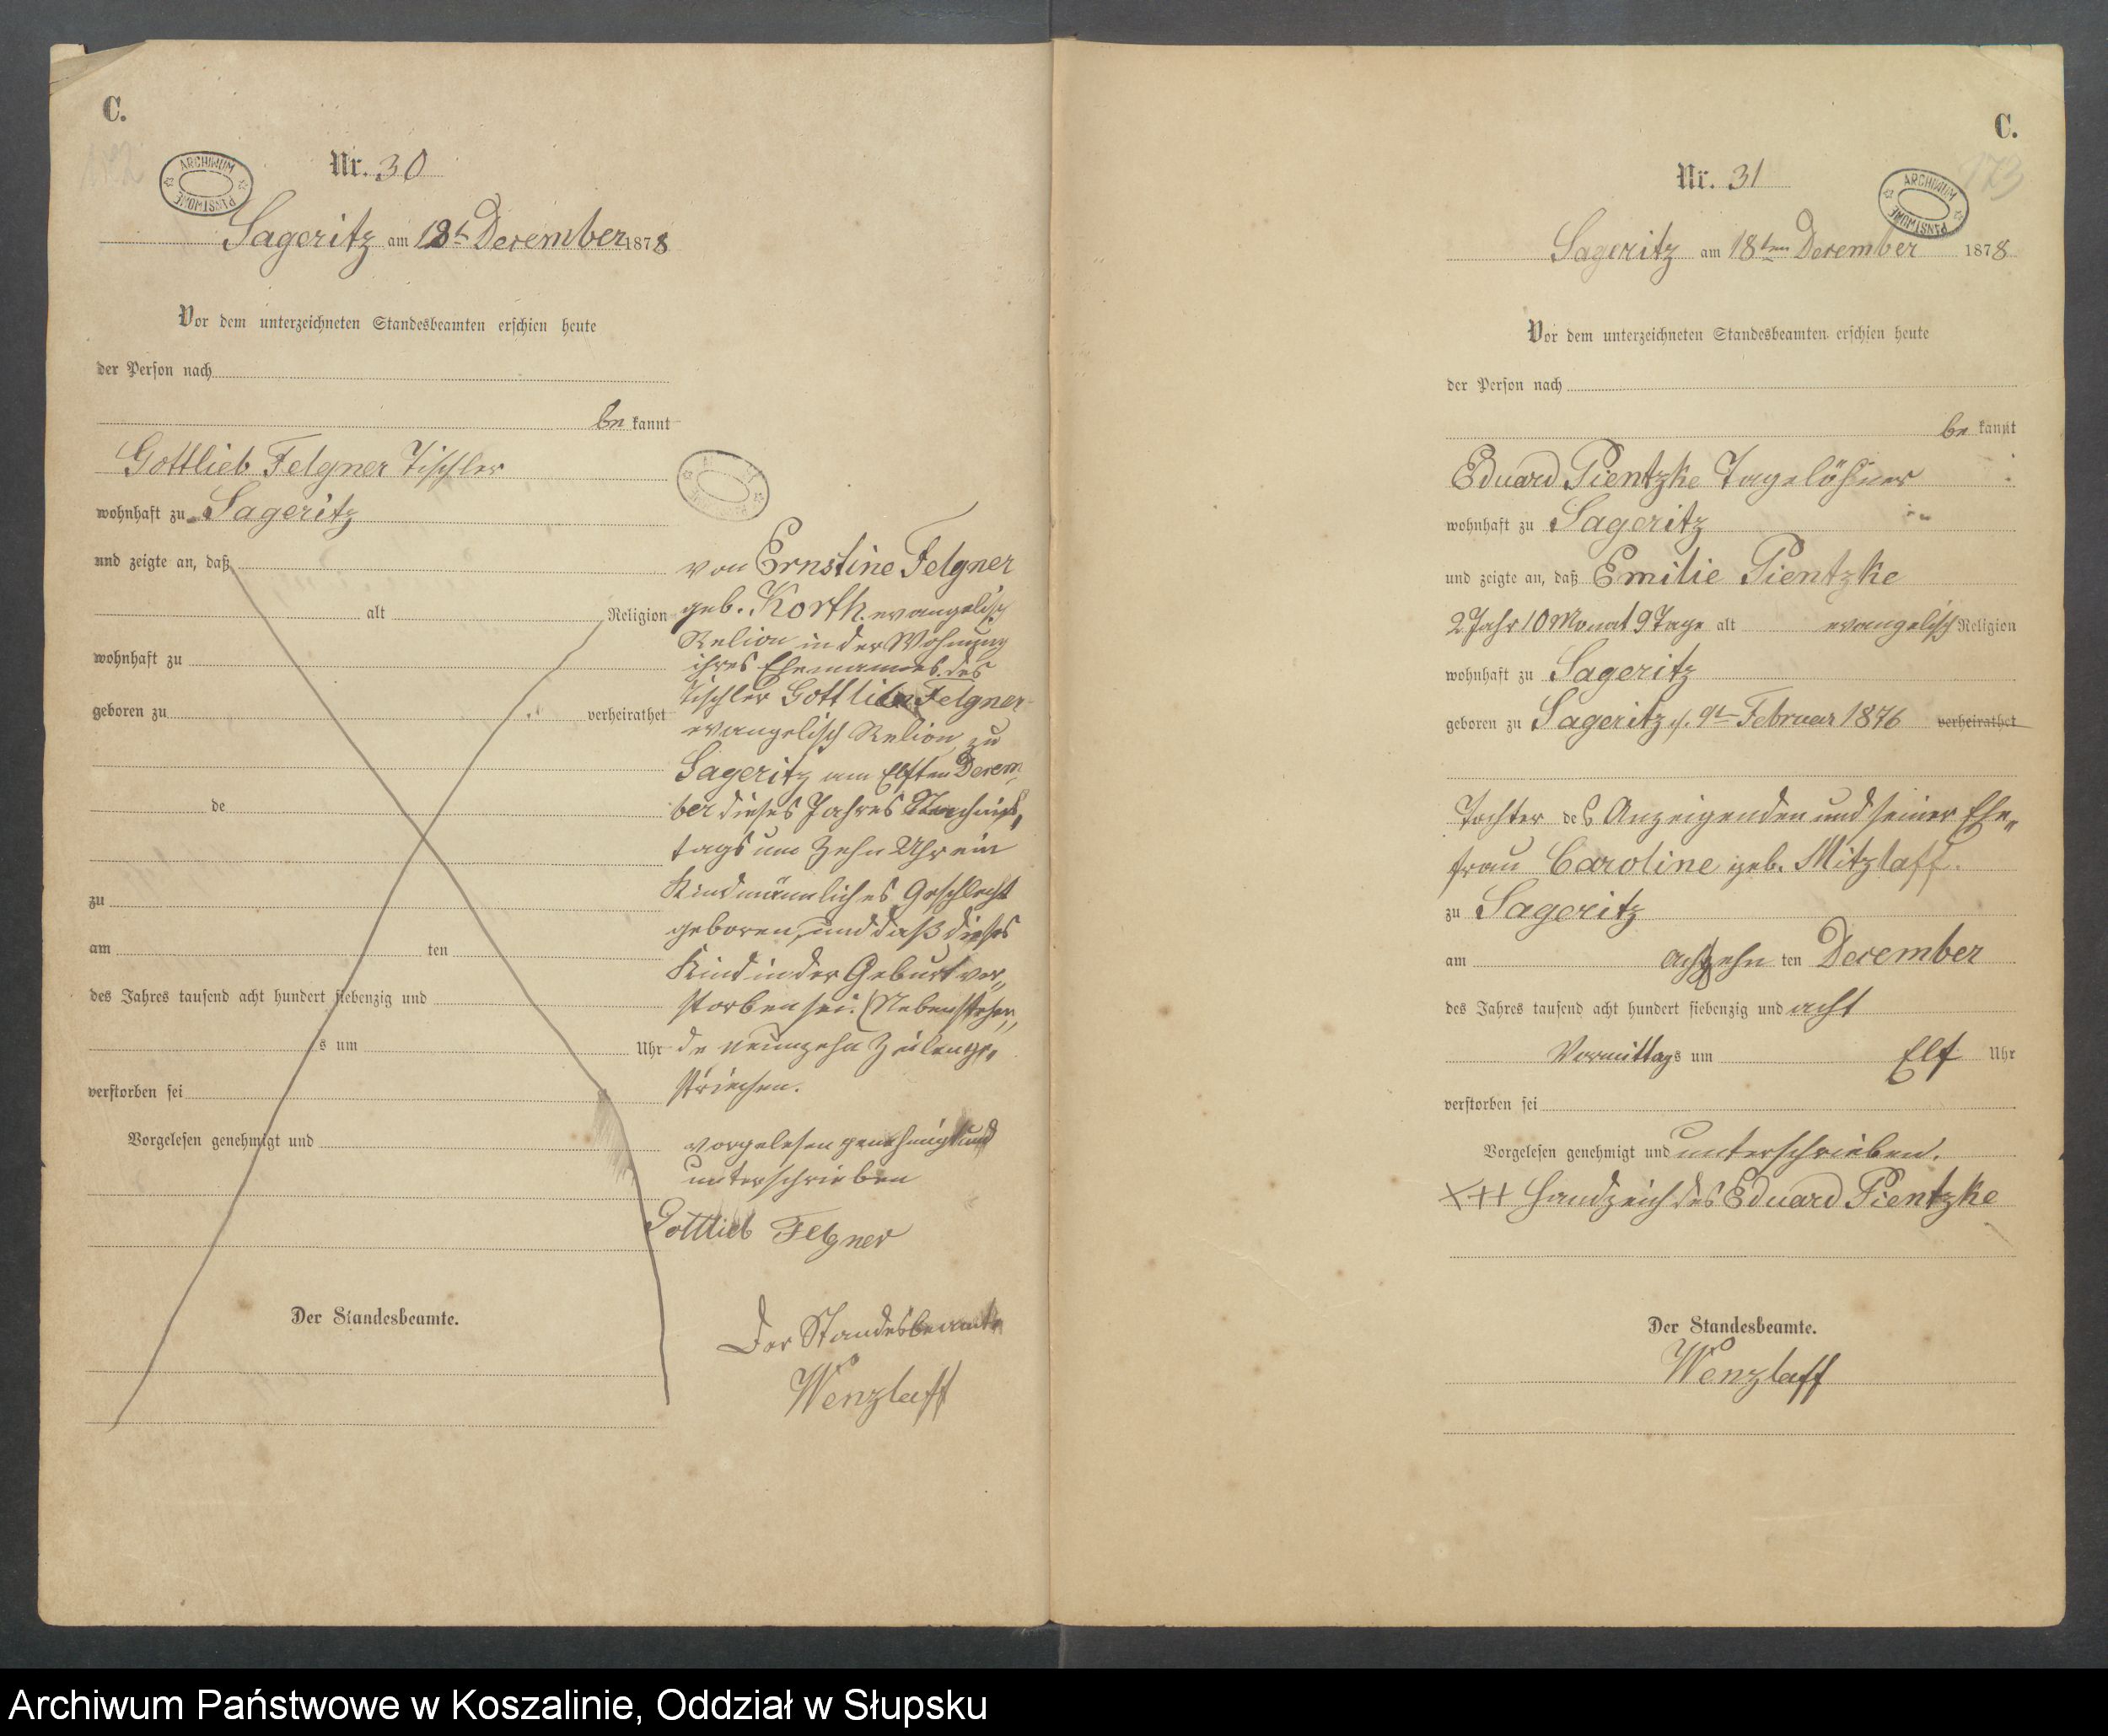 C.
Nr. 30
ARCHIWUM
PAŃSTWOWE
Sageritz am 18t December 1878
Vor dem unterzeichneten Standesbeamten erschien heute
der Person nach
be kannt
Gottlieb Felgner Tischler
wohnhaft zu Sageritz
und zeigte an, daß
alt Religion
wohnhaft zu
geboren zu verheirathet
de
zu
am ten
des Jahres tausend acht hundert siebenzig und
s um Uhr
verstorben sei
Vorgelesen genehmigt und
Der Standesbeamte.
von Ernstine Felgner
geb. Korth evangelisch
Relion in der Wohnung
ihres Ehemannes des
Tischler Gottlieb Felgner
evangelisch Relion zu
Sageritz am Elften Decem
ber dieses Jahres Nachmit,
tags um Zehn Uhr ein
Kind männliches Geschlecht
geboren, und daß dieses
Kind in der Geburt ver„
storben sei. (Nebenstehen„
de neunzehn Zeilen ge,
strichen.
vorgelesen genehmigt und
unterschrieben
Gottlieb Felgner
Der Standesbeamte
Wenzlaff
C.
Nr. 31
173
ARCHIWUM
PAŃSTWOWE
Sageritz am 18ten December 1878
Vor dem unterzeichneten Standesbeamten erschien heute
der Person nach
be kannt
Eduard Pientzke Tagelöhner
wohnhaft zu Sageritz
und zeigte an, daß Emilie Pientzke
2 Jahr 10 Monat 9 Tage alt evangelisch Religion
wohnhaft zu Sageritz
geboren zu Sageritz d. 9t Februar 1876 verheirathet
Tochter des Anzeigenden und seiner Ehe„
frau Caroline geb. Mitzlaff.
zu Sageritz
am achzehn ten December
des Jahres tausend acht hundert siebenzig und acht
Vormittags um Elf Uhr
verstorben sei
Vorgelesen genehmigt und unterschrieben.
+++ Handzeich des Eduard Pientzke
Der Standesbeamte.
Wenzlaff
Archiwum Państwowe w Koszalinie, Oddział w Słupsku